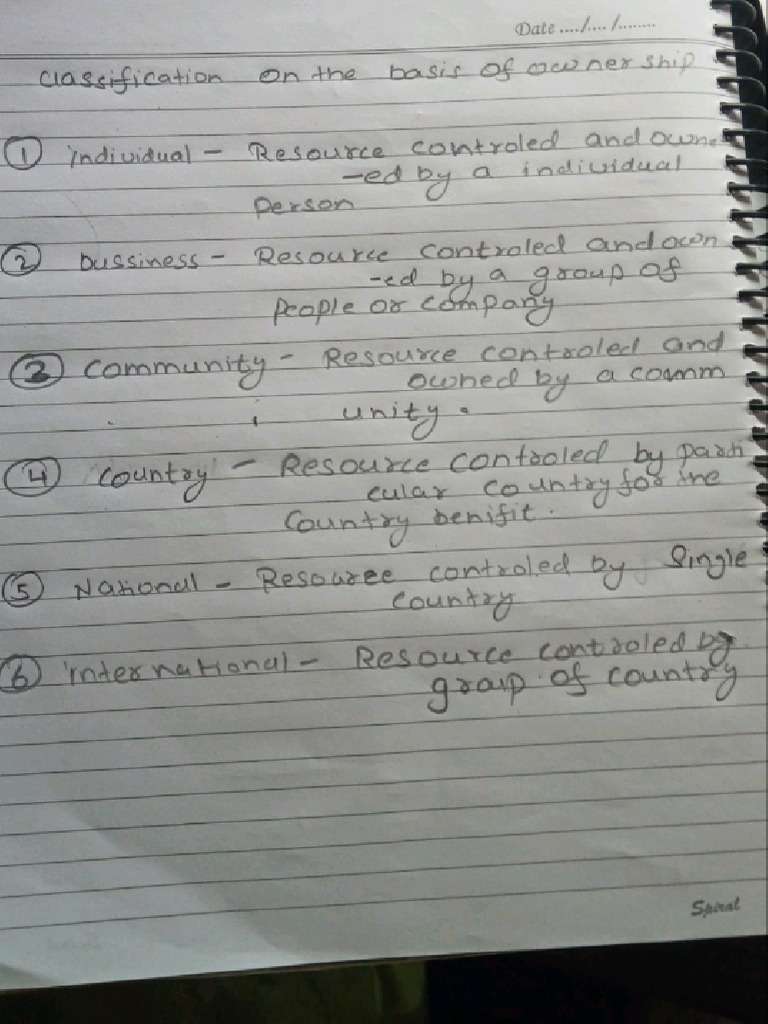 Date ..../..../........
Classification on the basis of owner ship
① individual - Resource controled and owne
-ed by a individual
person
② bussiness - Resource controled and own
-ed by a group of
people or company
③ Community - Resource controled and
owned by a comm
unity.
④ Country - Resource controled by parti
cular country for the
Country benifit.
⑤ National - Resource controled by Single
country
⑥ international - Resource controled by
group of country
Spiral